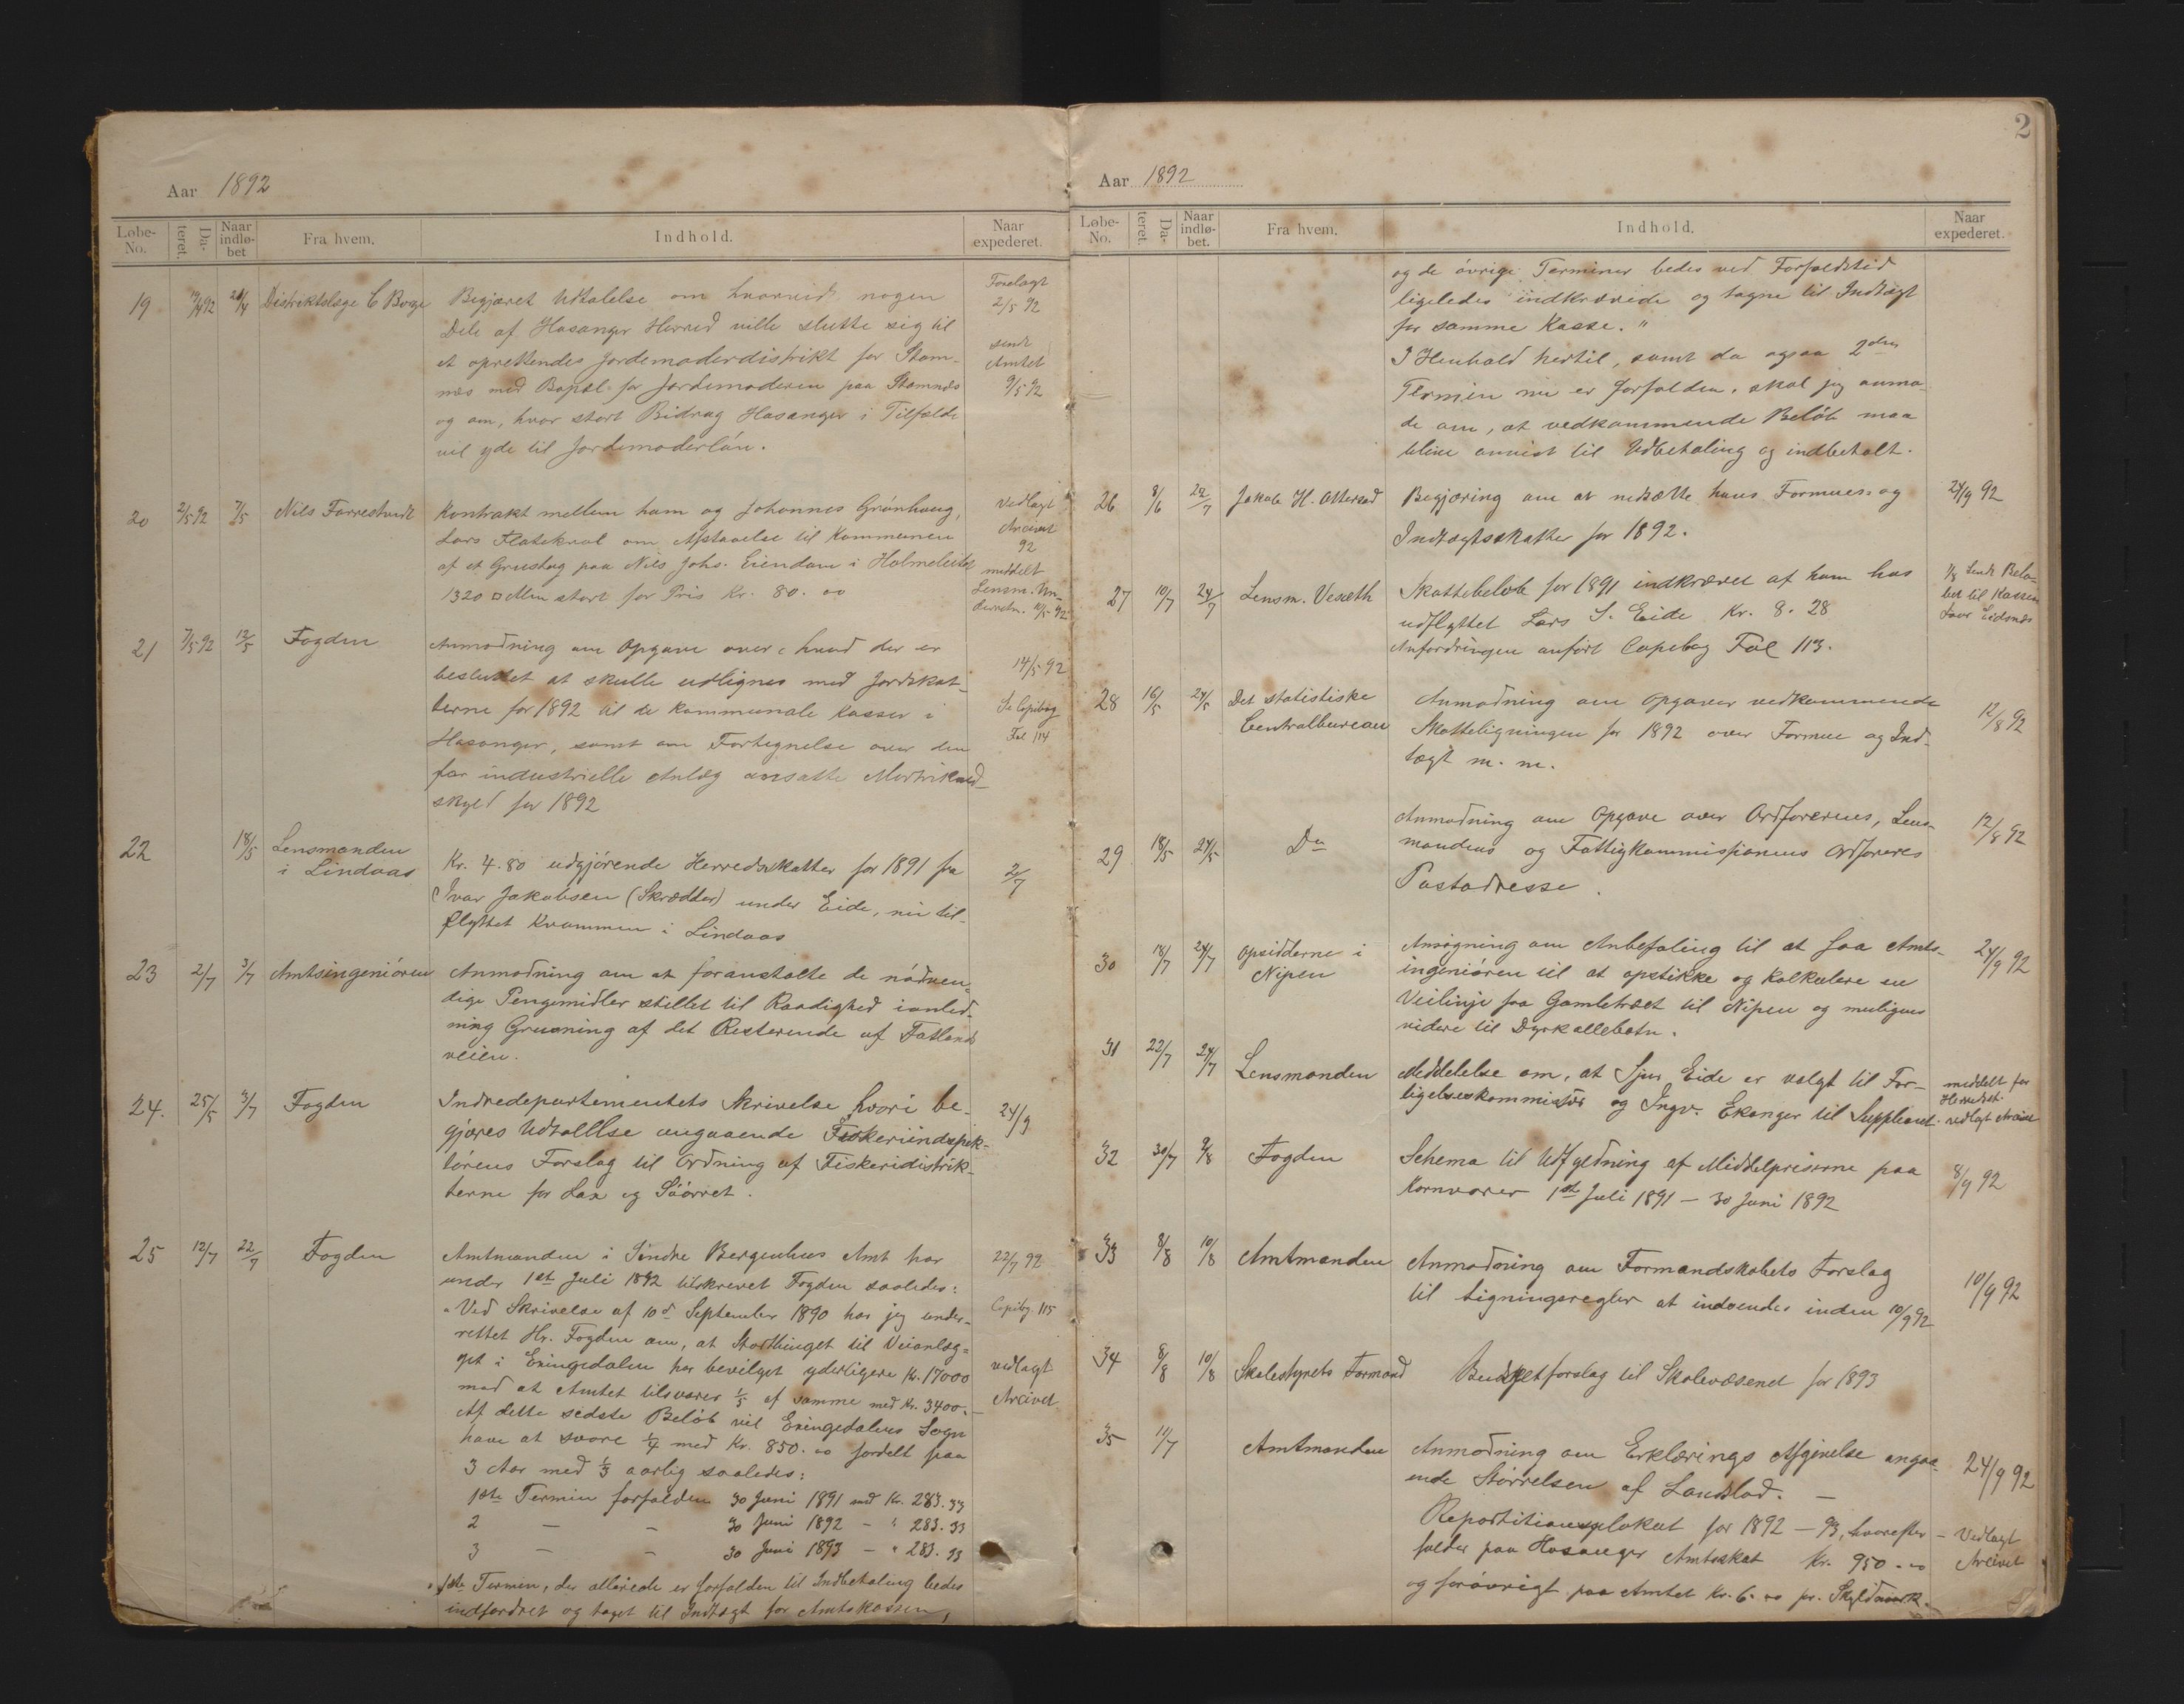 Aar 1892
Løbe-No. Dateret. Naar indløbet Fra hvem. Indhold. Naar expederet.
19 19/4 92 21/4 Distriktslæge C Borge Begjæret Udtalelse om hvorvidt nogen
Dele af Hosanger Herred ville slutte sig til
et oprettendes Jordemoderdistrikt for Stam-
næs med Bopæl for Jordemoderen paa Stamnæs
og om, hvor stort Bidrag Hosanger i Tilfælde
vil yde til Jordemoderlön.
Forelagt
2/5 92
sendt
Amtet
9/5 92
20 2/5 92 7/5 Nils Farrestvedt Kontrakt mellem ham og Johannes Grönhaug,
Lars Flatekval om Afstaaelse til Kommunen
af et Grustag paa Nils Johs. Eiendom i Holmeleitet
1320 □ Alen stort for Pris Kr. 80.00
Vedlagt
Arcivet
92
meddelt
Lensm. Un-
derretn. 10/5 92
21 7/5 92 12/5 Fogden Anmodning om Opgave over hvad der er
besluttet at skulle udlignes med Jordskat-
terne for 1892 til de kommunale Kasser i
Hosanger, samt om Fortegnelse over den
for industrielle Anlæg ansatte Matrikul-
skyld for 1892
14/5 92
Se Copibog
Fol 114
22 18/5 Lensmanden
i Lindaas Kr. 4.80 udgjörende Herredsskatter for 1891 fra
Ivar Jakobsen (Skrædder) under Eide, nu til-
flyttet Kvammen i Lindaas
2/7
23 2/7 3/7 Amtsingeniören Anmodning om at foranstalte de nödven-
dige Pengemidler stillet til Raadighed i anled-
ning Grusning af det Resterende af Fatlands
veien.
24. 25/5 3/7 Fogden Indredepartementets Skrivelse hvori be-
gjæres Udtallelse angaaende Fiskeriindspek-
törens Forslag til Ordning af Fiskeridistrik-
terne for Lax og Söörret.
24/9
25 12/7 22/7 Fogden Amtmanden i Söndre Bergenhus Amt har
under 1st Juli 1892 tilskrevet Fogden saaledes:
"Ved Skrivelse af 10d September 1890 har jeg under-
rettet Hr. Fogden om, at Storthinget til Veianlæg-
get i Exingedalen har bevilget yderligere Kr. 17000
mod at Amtet tilsvarer 1/5 af samme med Kr. 3400.-
Af dette sidste Belöb vil Exingedalens Sogn
have at svare 1/4 med Kr. 850.00 fordelt paa
3 Aar med 1/3 aarlig saaledes:
1ste Termin forfalden 30 Juni 1891 med Kr. 283.33
2 — - 30 Juni 1892 - " 283.33
3 — - 30 Juni 1893 - " 283.33
1ste Termin, der allerede er forfalden til Indbetaling bedes
indfordret og taget til Indtægt for Amtskassen,
22/7 92
Copibg. 115
vedlagt
Arcivet
2
Aar 1892
Løbe-No. Dateret. Naar indløbet. Fra hvem. Indhold. Naar expederet.
og de övrige Terminer bedes ved Forfaldstid
ligeledes indkrævede og tagne til Indtægt
for samme Kasse."
I Henhold hertil, samt da ogsaa 2den
Termin nu er forfalden, skal jeg anmo-
de om, at vedkommende Belöb maa
blive anvist til Udbetaling og indbetalt.
26 8/6 22/7 Jakob H. Otterstad Begjæring om at nedsætte hans Formues- og
Indtægtsskatter for 1892.
24/9 92
27 10/7 24/7 Lensm. Veseth Skattebeløb for 1891 indkrævet af ham hos
udflyttet Lars S. Eide Kr. 8.28
Anfordringen anfört Copibog Fol 113.
1/8 Sendt Belø-
bet til Kassen
Eidsnæs
28 16/5 24/5 Det statistiske
Centralbureau Anmodning om Opgaver vedkommende
Skatteligningen for 1892 over Formue og Ind-
tægt m. m.
12/8 92
29 18/5 24/5 Do Anmodning om Opgave over Ordförerens, Lens-
mandens og Fattigkommissionens Ordförers
Postadresse.
12/8 92
30 18/7 24/7 Opsidderne i
Nipen Ansögning om Anbefaling til at faa Amts-
ingeniören til at opstikke og kalkulere en
Veilinje fra Gamletræet til Nipen og muligens
videre til Dyrkollebotn.
24/9 92
31 22/7 24/7 Lensmanden Meddelelse om, at Sjur Eide er valgt til For-
ligelseskommissær og Ingv. Ekanger til Suppleant.
meddelt for
Herredst.
vedlagt Arcivet
32 30/7 9/8 Fogden Schema til Udfyldning af Middelpriserne paa
Kornvarer 1st Juli 1891 — 30 Juni 1892
8/9 92
33 8/8 10/8 Amtmanden Anmodning om Formandskabets Forslag
til Ligningsregler at indsendes inden 10/9 92
10/9 92
34 8/8 10/8 Skolestyrets Formand Budgetforslag til Skolevæsenet for 1893
35 11/7 Amtmanden Anmodning om Erklærings Afgivelse angaa-
ende Störrelsen af Landslod. —
24/9 92
Repartitionsplakat for 1892 — 93, hvorefter
falder paa Hosanger Amtsskat Kr. 950.00
og forövrigt paa Amtet Kr. 6.00 pr. Skyldmark.
- Vedlagt
Arcivet